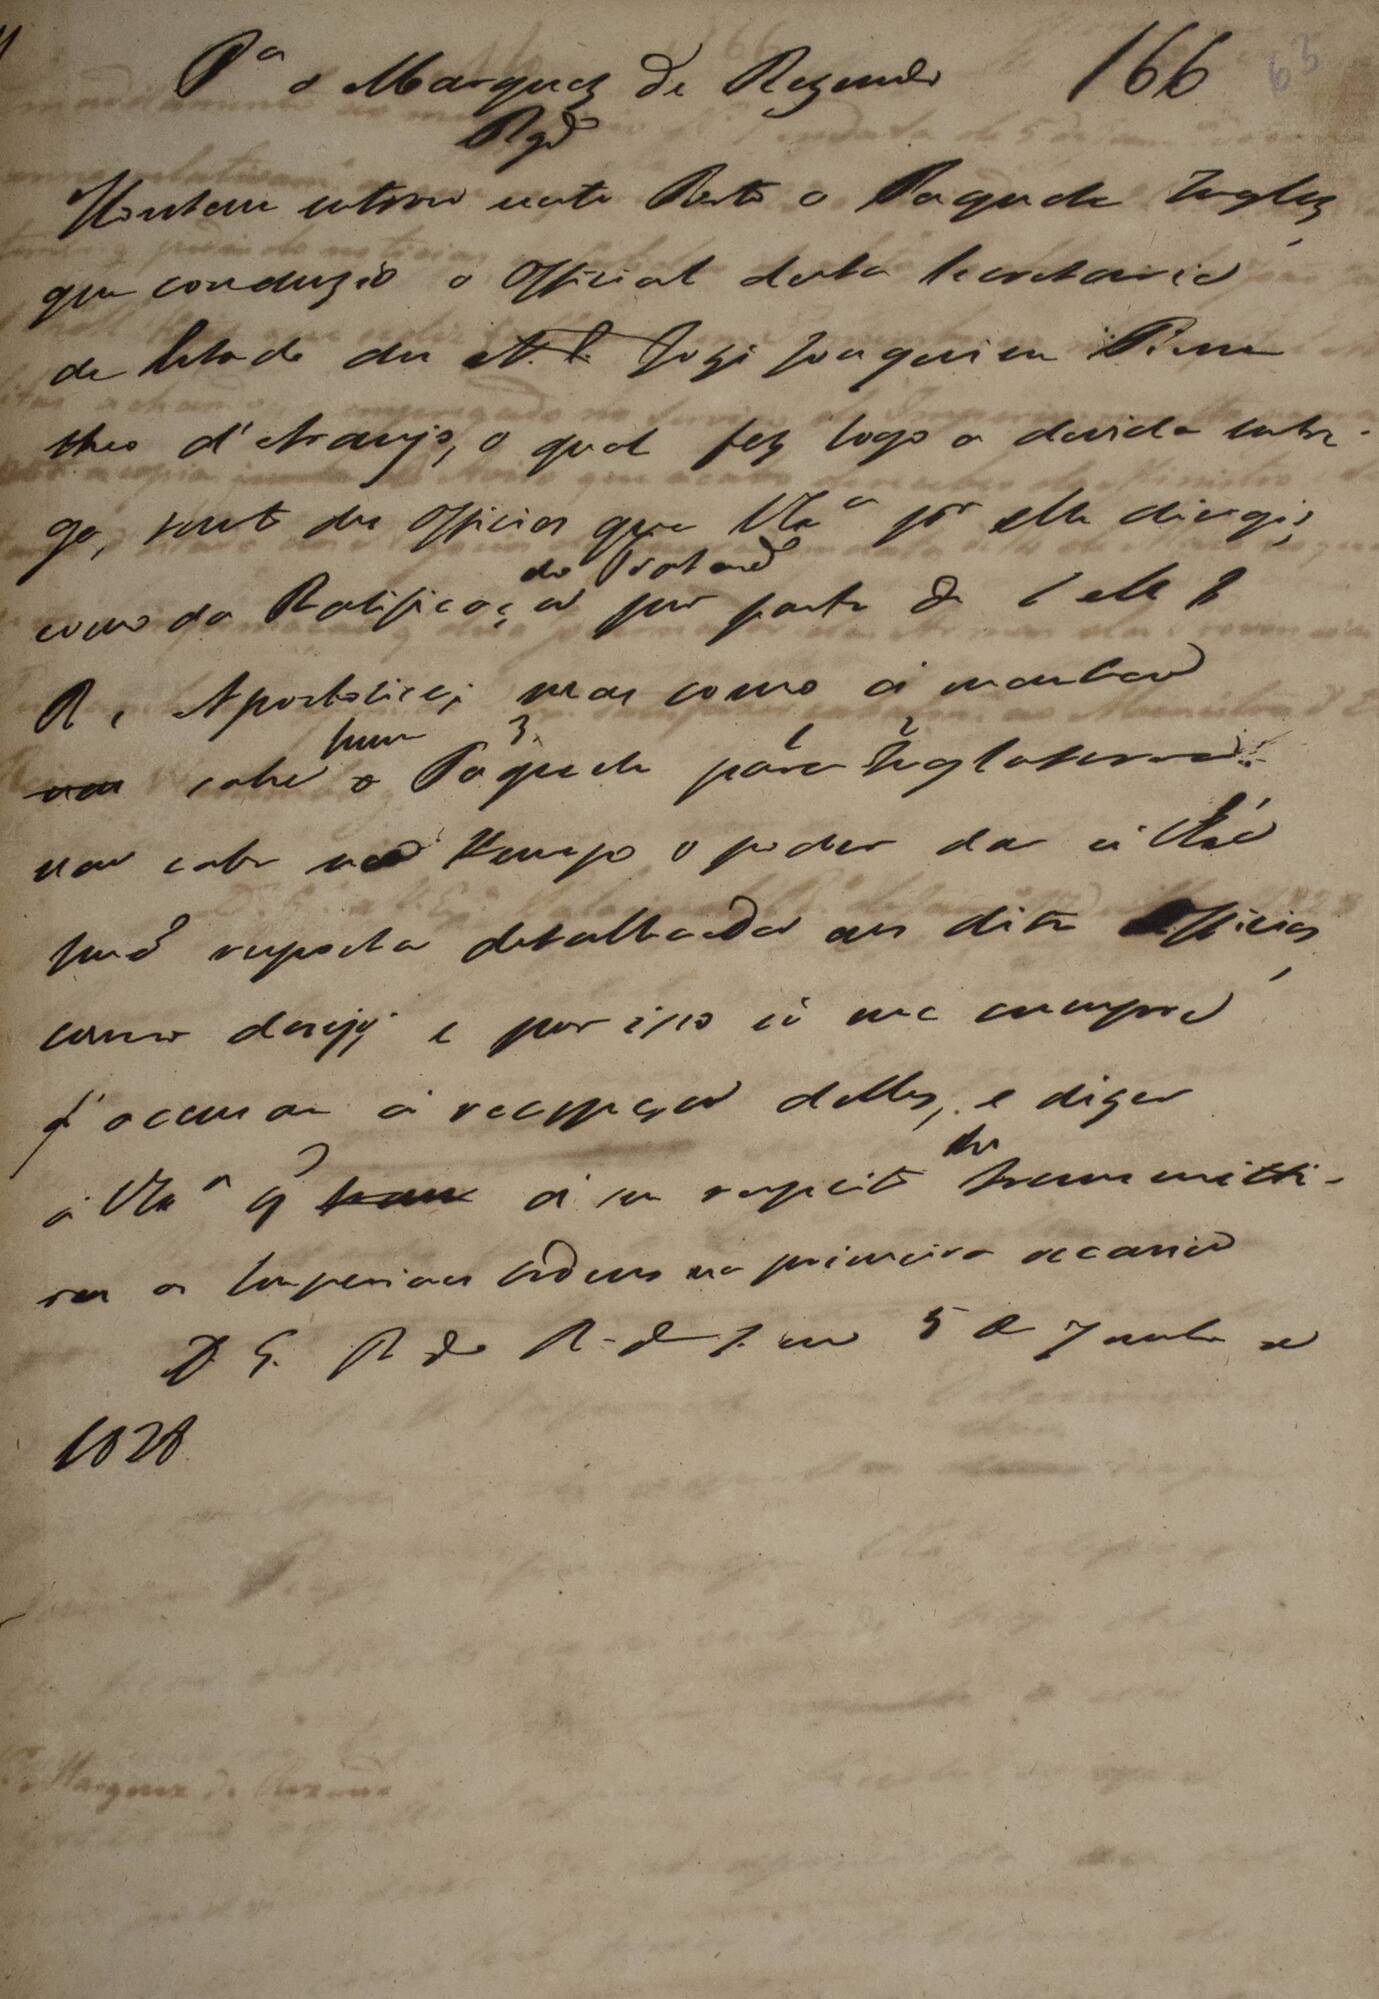 Pª o Marquez de Rezende 166 63
Rgdº
Hontem entrou neste Porto o Paquete Inglez,
que conduzio o Official desta Secretaria
de Estado dos N. E. José Joaquim Timo
theo d'Araujo, o qual fez logo a devida entre-
ga, tanto dos Officios que VEx.ª por elle dirigio,
como da Ratificaçaõ do Tratado por parte de S M I
R e Apostolica; mas como á manhaã
nas sahe hum o Paquete para Inglaterra
naõ cabe no tempo o poder dar á VExª
huã resposta detalhada aos ditos Officios,
como desejo; e por isso só me cumpre
accusar a recepçaõ delles, e dizer
á VExª q á seu respeito lhe transmitti-
rei as Imperiaes Ordens na primeira occasiaõ
D. G. P. do R. de J. em 5 de Junho de
1828
Marquez de Rezende